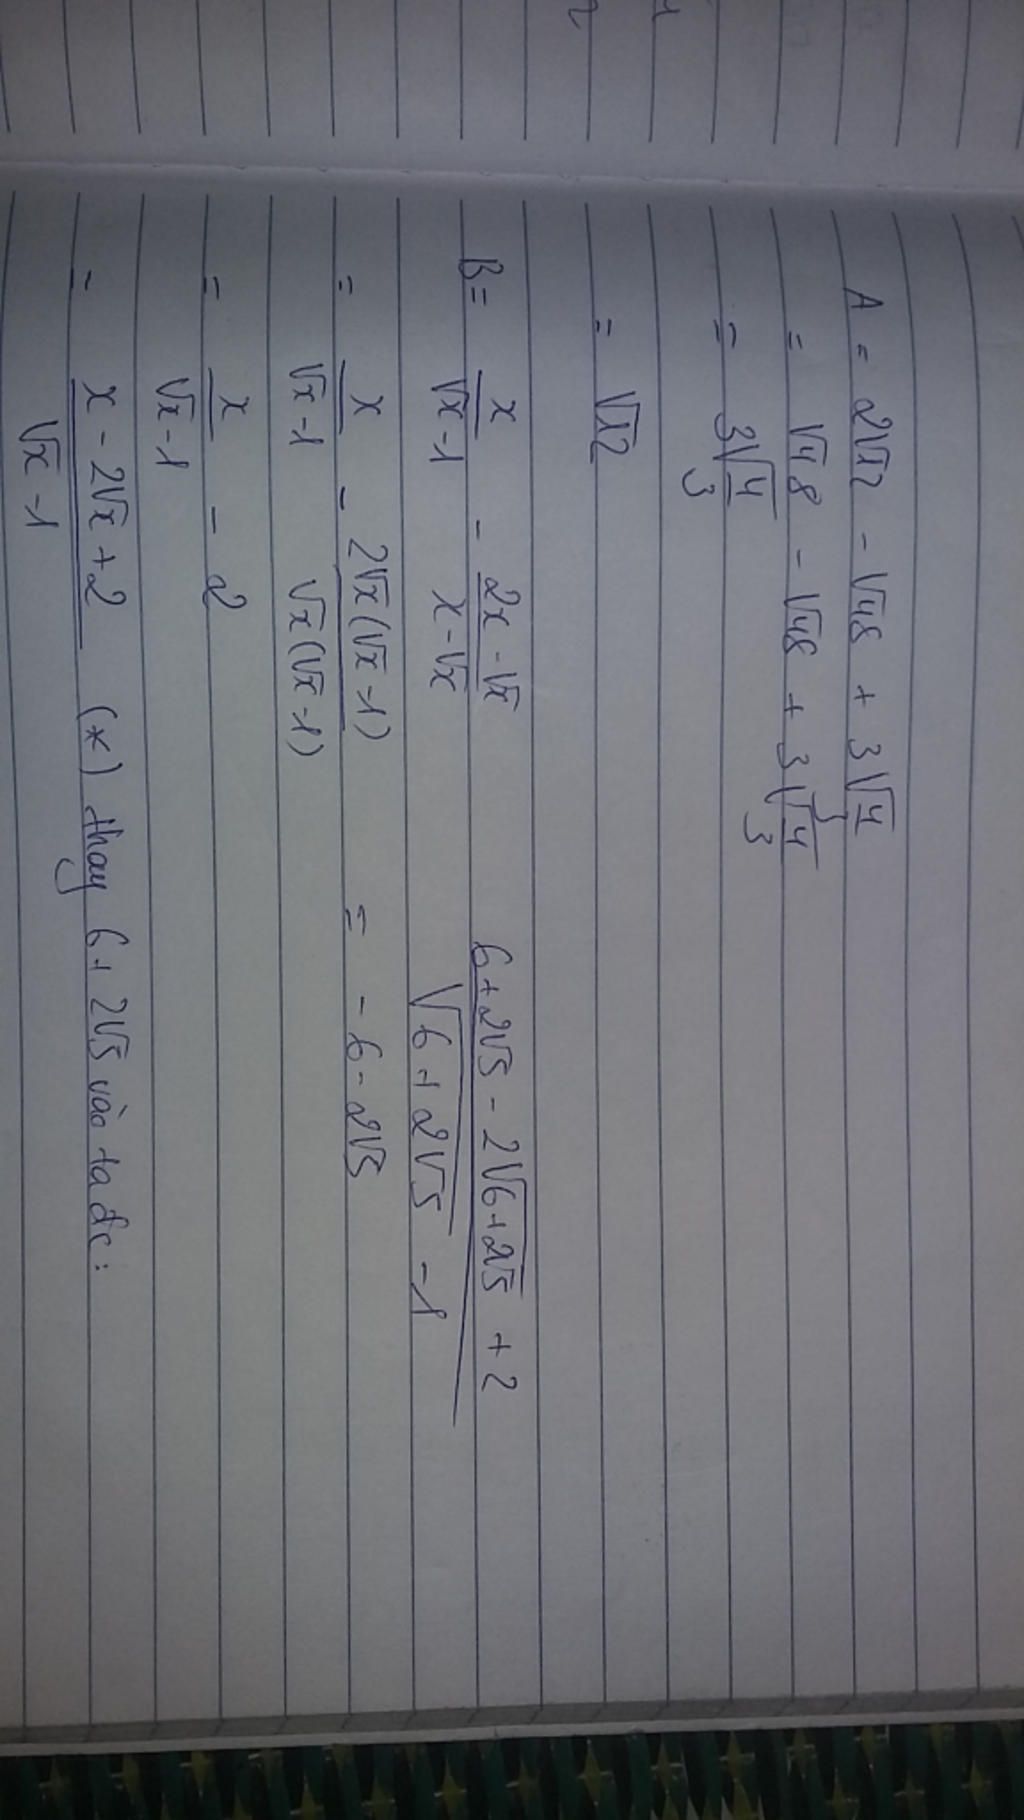 A = 2√12 - √48 + 3√(4/3)
= √48 - √48 + 3√(4/3)
= 3√(4/3)
= √12
B = x/(√x - 1) - (2x - √x)/(x - √x)
= x/(√x - 1) - 2√x(√x - 1)/(√x(√x - 1))
= x/(√x - 1) - 2
= (x - 2√x + 2)/(√x - 1) (*) thay 6 + 2√5 vào ta đc:
(6 + 2√5 - 2√(6 + 2√5) + 2)/(√(6 + 2√5) - 1)
= - 6 - 2√5